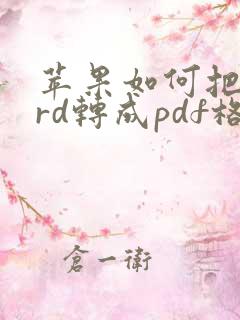 苹果如何把
rd轉成pdf格
倉一衛